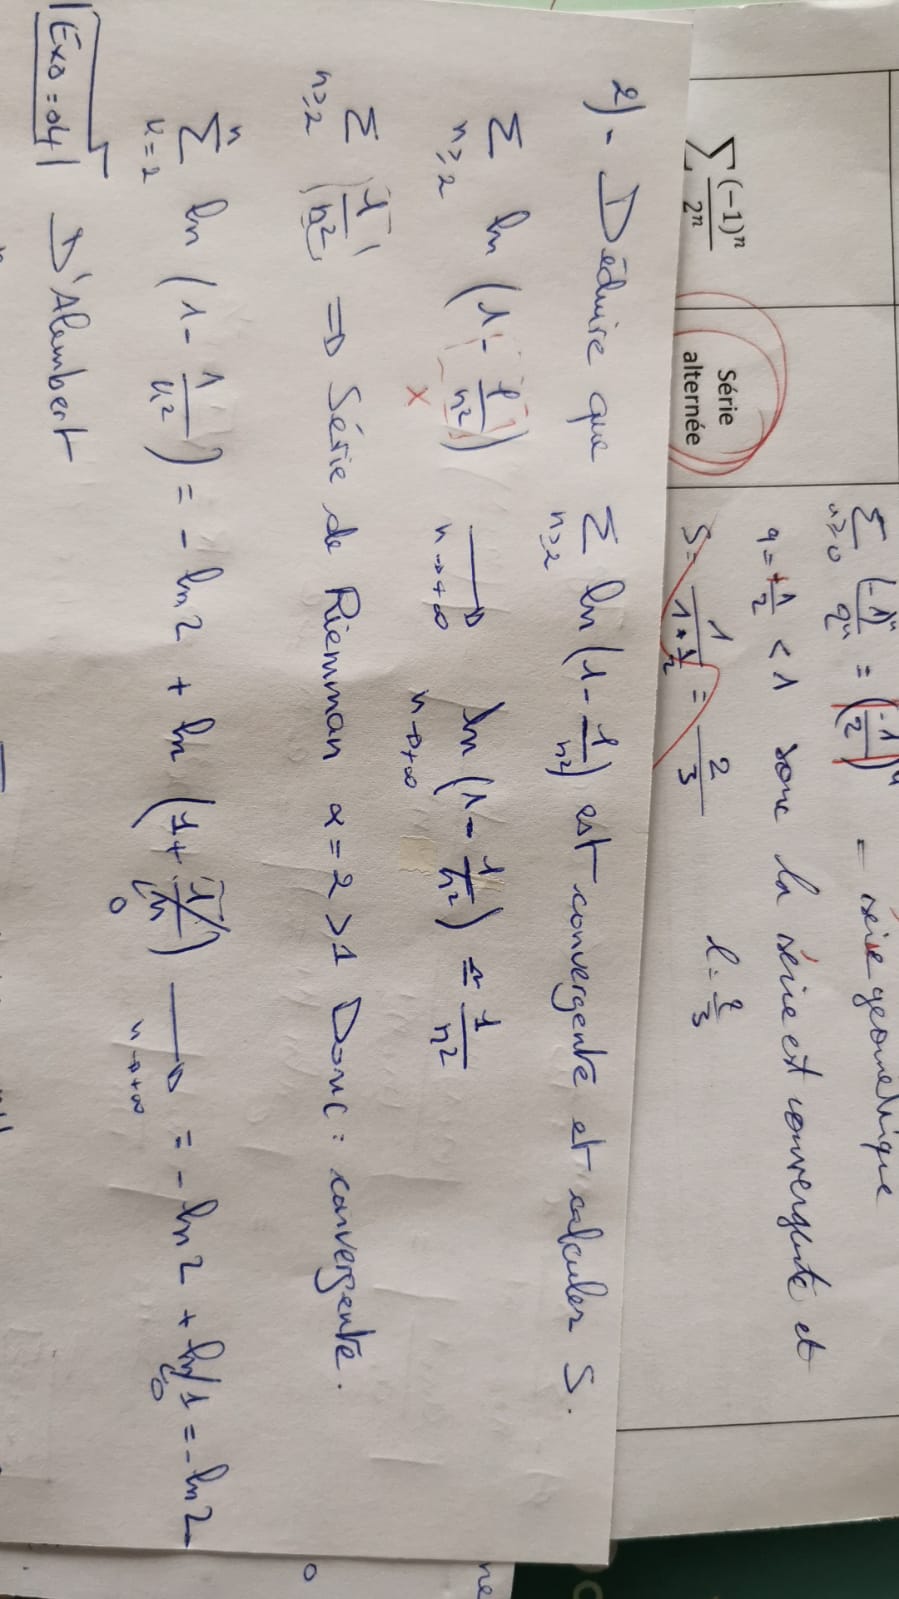 ∑ (-1)ⁿ/2ⁿ
Série
alternée
∑ n≥0 (-1)ⁿ/2ⁿ = (-1/2)ⁿ = série géométrique
q = -1/2 < 1 donc la série est convergente et
S = 1/(1+1/2) = 2/3 l = 2/3
2)- Déduire que ∑ n≥2 ln(1-1/n²) est convergente et calculer S.
∑ n≥2 ln(1-1/n²) → n→+∞ ln(1-1/n²) ≃ 1/n² n→+∞
x
∑ n≥2 |1/n²| ⇒ Série de Riemman α=2>1 Donc: convergente.
∑ n k=2 ln(1-1/k²) = -ln2 + ln(1+1/n) → n→+∞ = -ln2 + ln1 = -ln2
0 0
Exo=04 D'Alembert